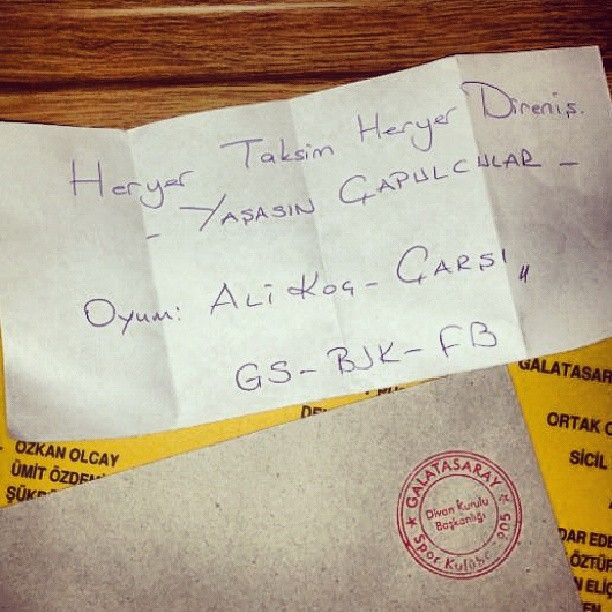 Heryer Taksim Heryer Direniş.
- YAŞASIN ÇAPULCULAR -
Oyum: ALİ KOÇ - ÇARŞI "
GS - BJK - FB
GALATASAR
ORTAK
SİCİL
ÖZKAN OLCAY
ÜMİT ÖZDE
ŞÜK
DAR EDE
ÖZTÜR
N ELİG
GALATASARAY
Divan Kurulu
Başkanlığı
Spor Kulübü 905